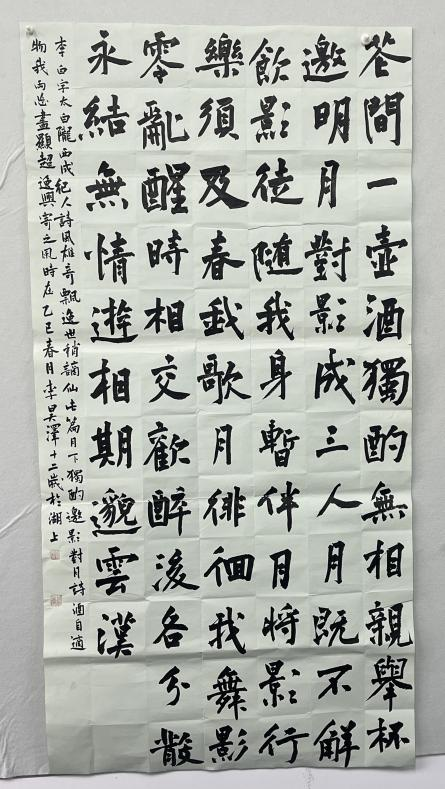 花間一壺酒獨酌無相親舉杯
邀明月對影成三人月既不解
飲影徒随我身暫伴月將影行
樂須及春我歌月徘徊我舞影
零亂醒時相交歡醉後各分散
永結無情遊相期邈雲漢
李白字太白隴西成紀人詩風雄奇飄逸世稱謫仙此篇月下獨酌邀影對月詩酒自適
物我兩忘盡顯超逸興寄之風時在乙巳春月李昊澤十二歲於湖上